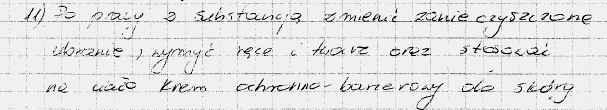 11) Po pracy z substancją zmienić zanieczyszczone
ubranie, wymyć ręce i twarz oraz stosować
na ciało krem ochronno-barierowy do skóry